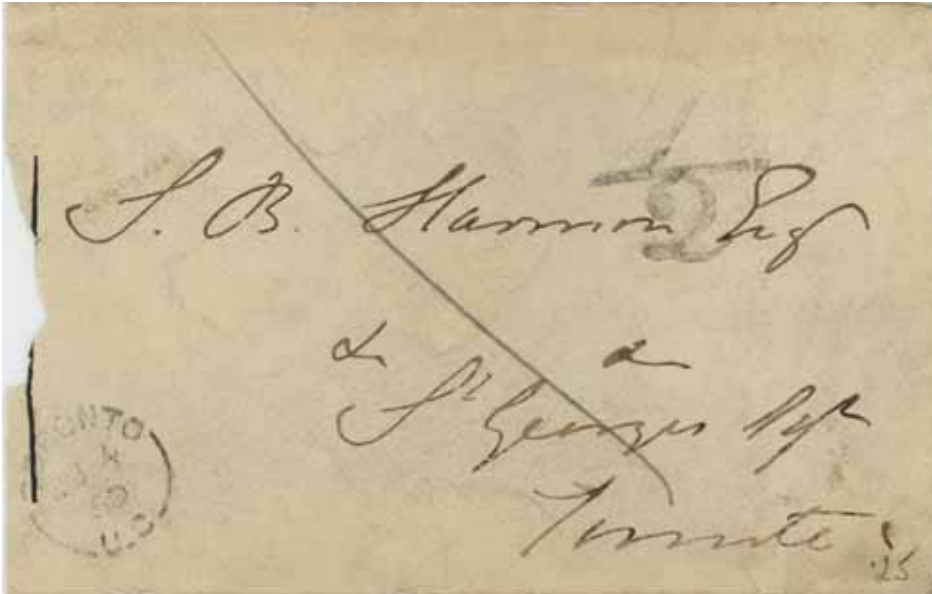 S. B. Harrison Esq
&c &c
St Georges Sqr
Toronto
1/2
ONTO
U.C
25